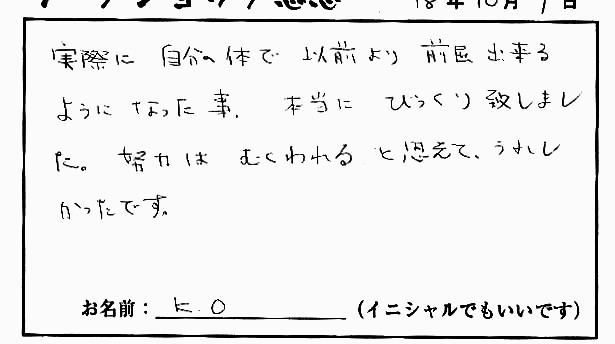 18年10月1日
実際に 自分の体で 以前より 前屈 出来る
ように なった事、 本当に びっくり 致しまし
た。 努力は むくわれる と思えて、うれし
かったです。
お名前：K.O（イニシャルでもいいです）